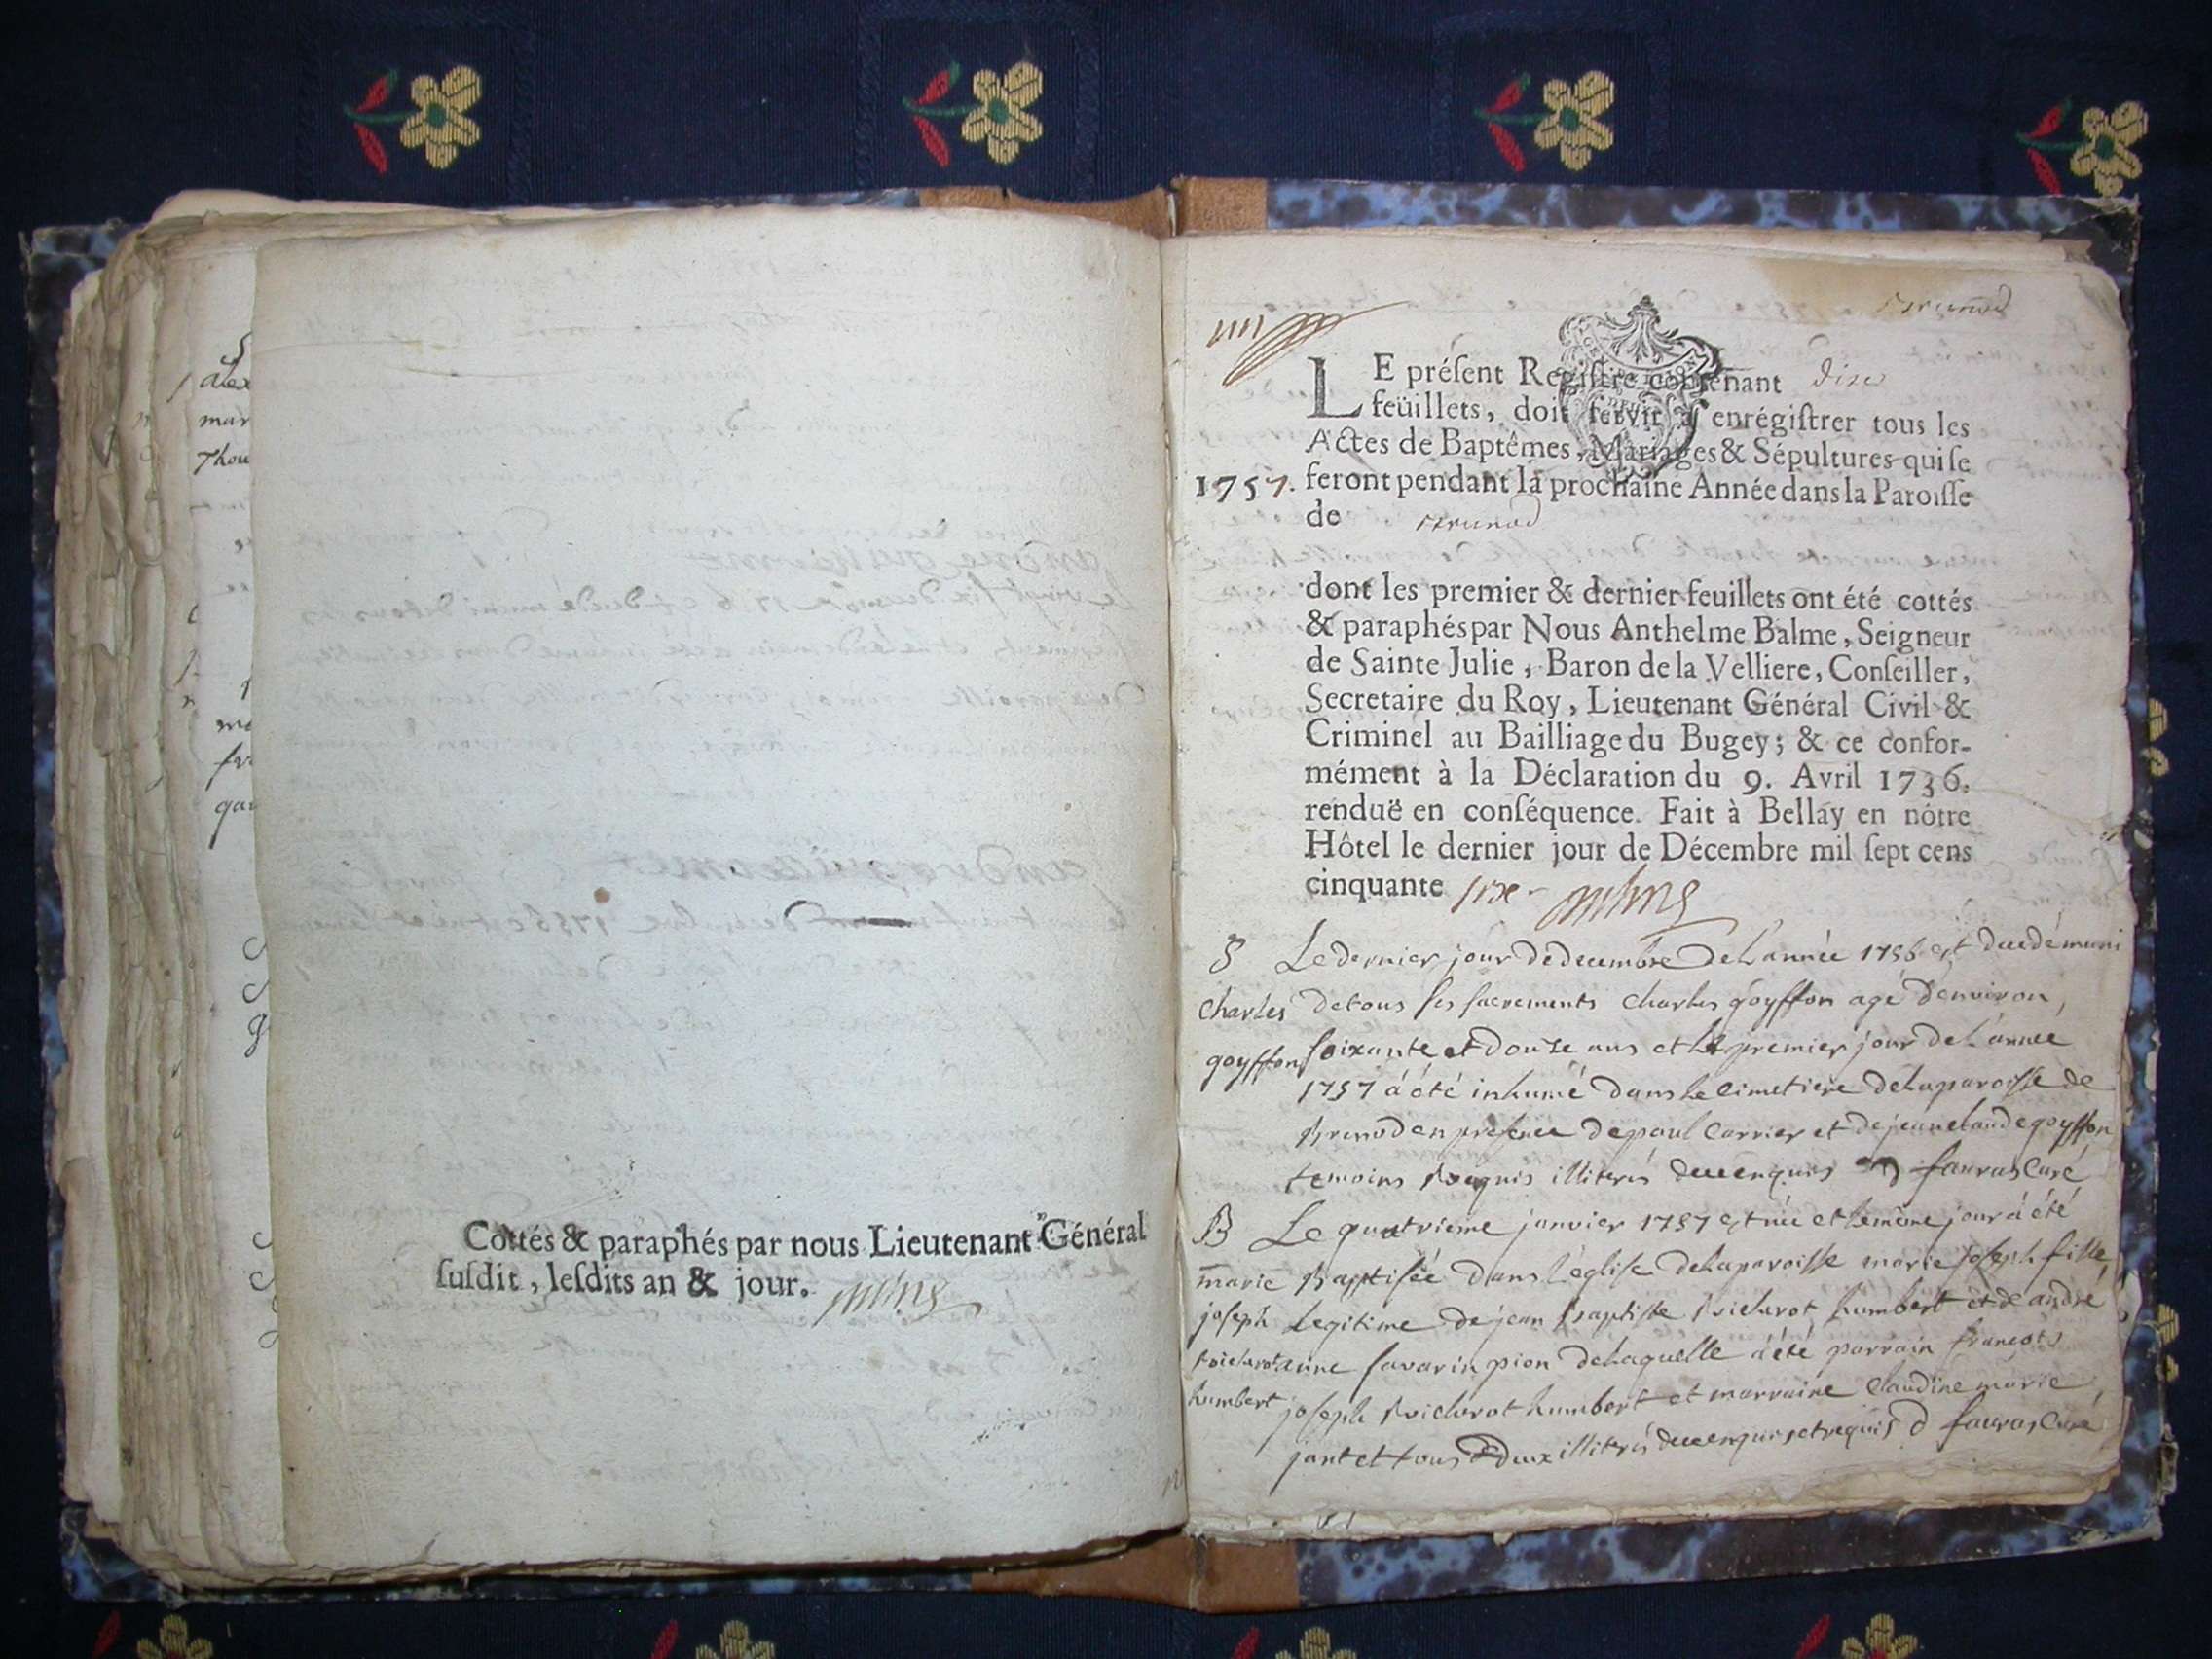 alex
mar
Thou
fr
gar
Cottés & paraphés par nous Lieutenant Général
ſuſdit, leſdits an & jour.
Brenod
LE préſent Regiſtre contenant dix
feüillets, doit ſervir à enrégiſtrer tous les
Actes de Baptêmes, Mariages & Sépultures qui ſe
1757. feront pendant la prochaine Année dans la Paroiſſe
de Brenod
dont les premier & dernier feuillets ont été cottés
& paraphés par Nous Anthelme Balme, Seigneur
de Sainte Julie, Baron de la Velliere, Conſeiller,
Secretaire du Roy, Lieutenant Général Civil &
Criminel au Bailliage du Bugey; & ce confor-
mément à la Déclaration du 9. Avril 1736.
renduë en conſéquence. Fait à Bellay en nôtre
Hôtel le dernier jour de Décembre mil ſept cens
cinquante six
S Le dernier jour de decembre de l'année 1756 est decedé muni
Charles de tous ses sacrements charles goyffon agé d'environ
goyffon soixante et douze ans et le premier jour de l'année
1757 a été inhumé dans le cimetiere de la paroisse de
Brenod en presence de paul Carrier et de jean claude goyffon
temoins Requis illiterés de ce enquis D fauras Curé
B Le quatrieme janvier 1757 est née et le même jour a été
marie Baptisée dans l'église de la paroisse marie joseph fille
joseph Legitime de jean Baptiste Bicharot humbert et de andré
Bicharot anne savarin pion de laquelle a été parrain françois
humbert joseph Bicharot humbert et marraine Claudine marie
jantet tous deux illiterés de ce enquis et requis D fauras Curé